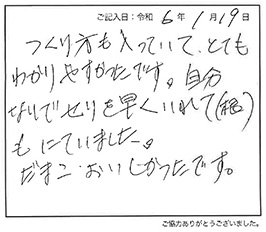 ご記入日:令和 6年 1月 19日
つくり方も入っていて、とても
わかりやすかったです。自分
なりでせりを早くいれて(根)
もにていました。
だまこ・おいしかったです。
ご協力ありがとうございました。